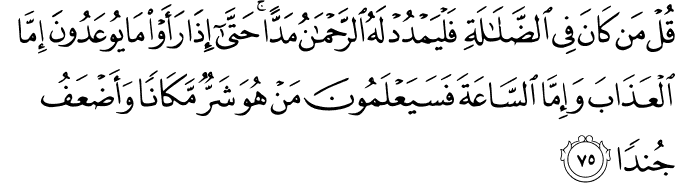 قُلْ مَن كَانَ فِى ٱلضَّلَـٰلَةِ فَلْيَمْدُدْ لَهُ ٱلرَّحْمَـٰنُ مَدًّا ۚ حَتَّىٰٓ إِذَا رَأَوْا۟ مَا يُوعَدُونَ إِمَّا
ٱلْعَذَابَ وَإِمَّا ٱلسَّاعَةَ فَسَيَعْلَمُونَ مَنْ هُوَ شَرٌّ مَّكَانًا وَأَضْعَفُ
جُندًا ٧٥